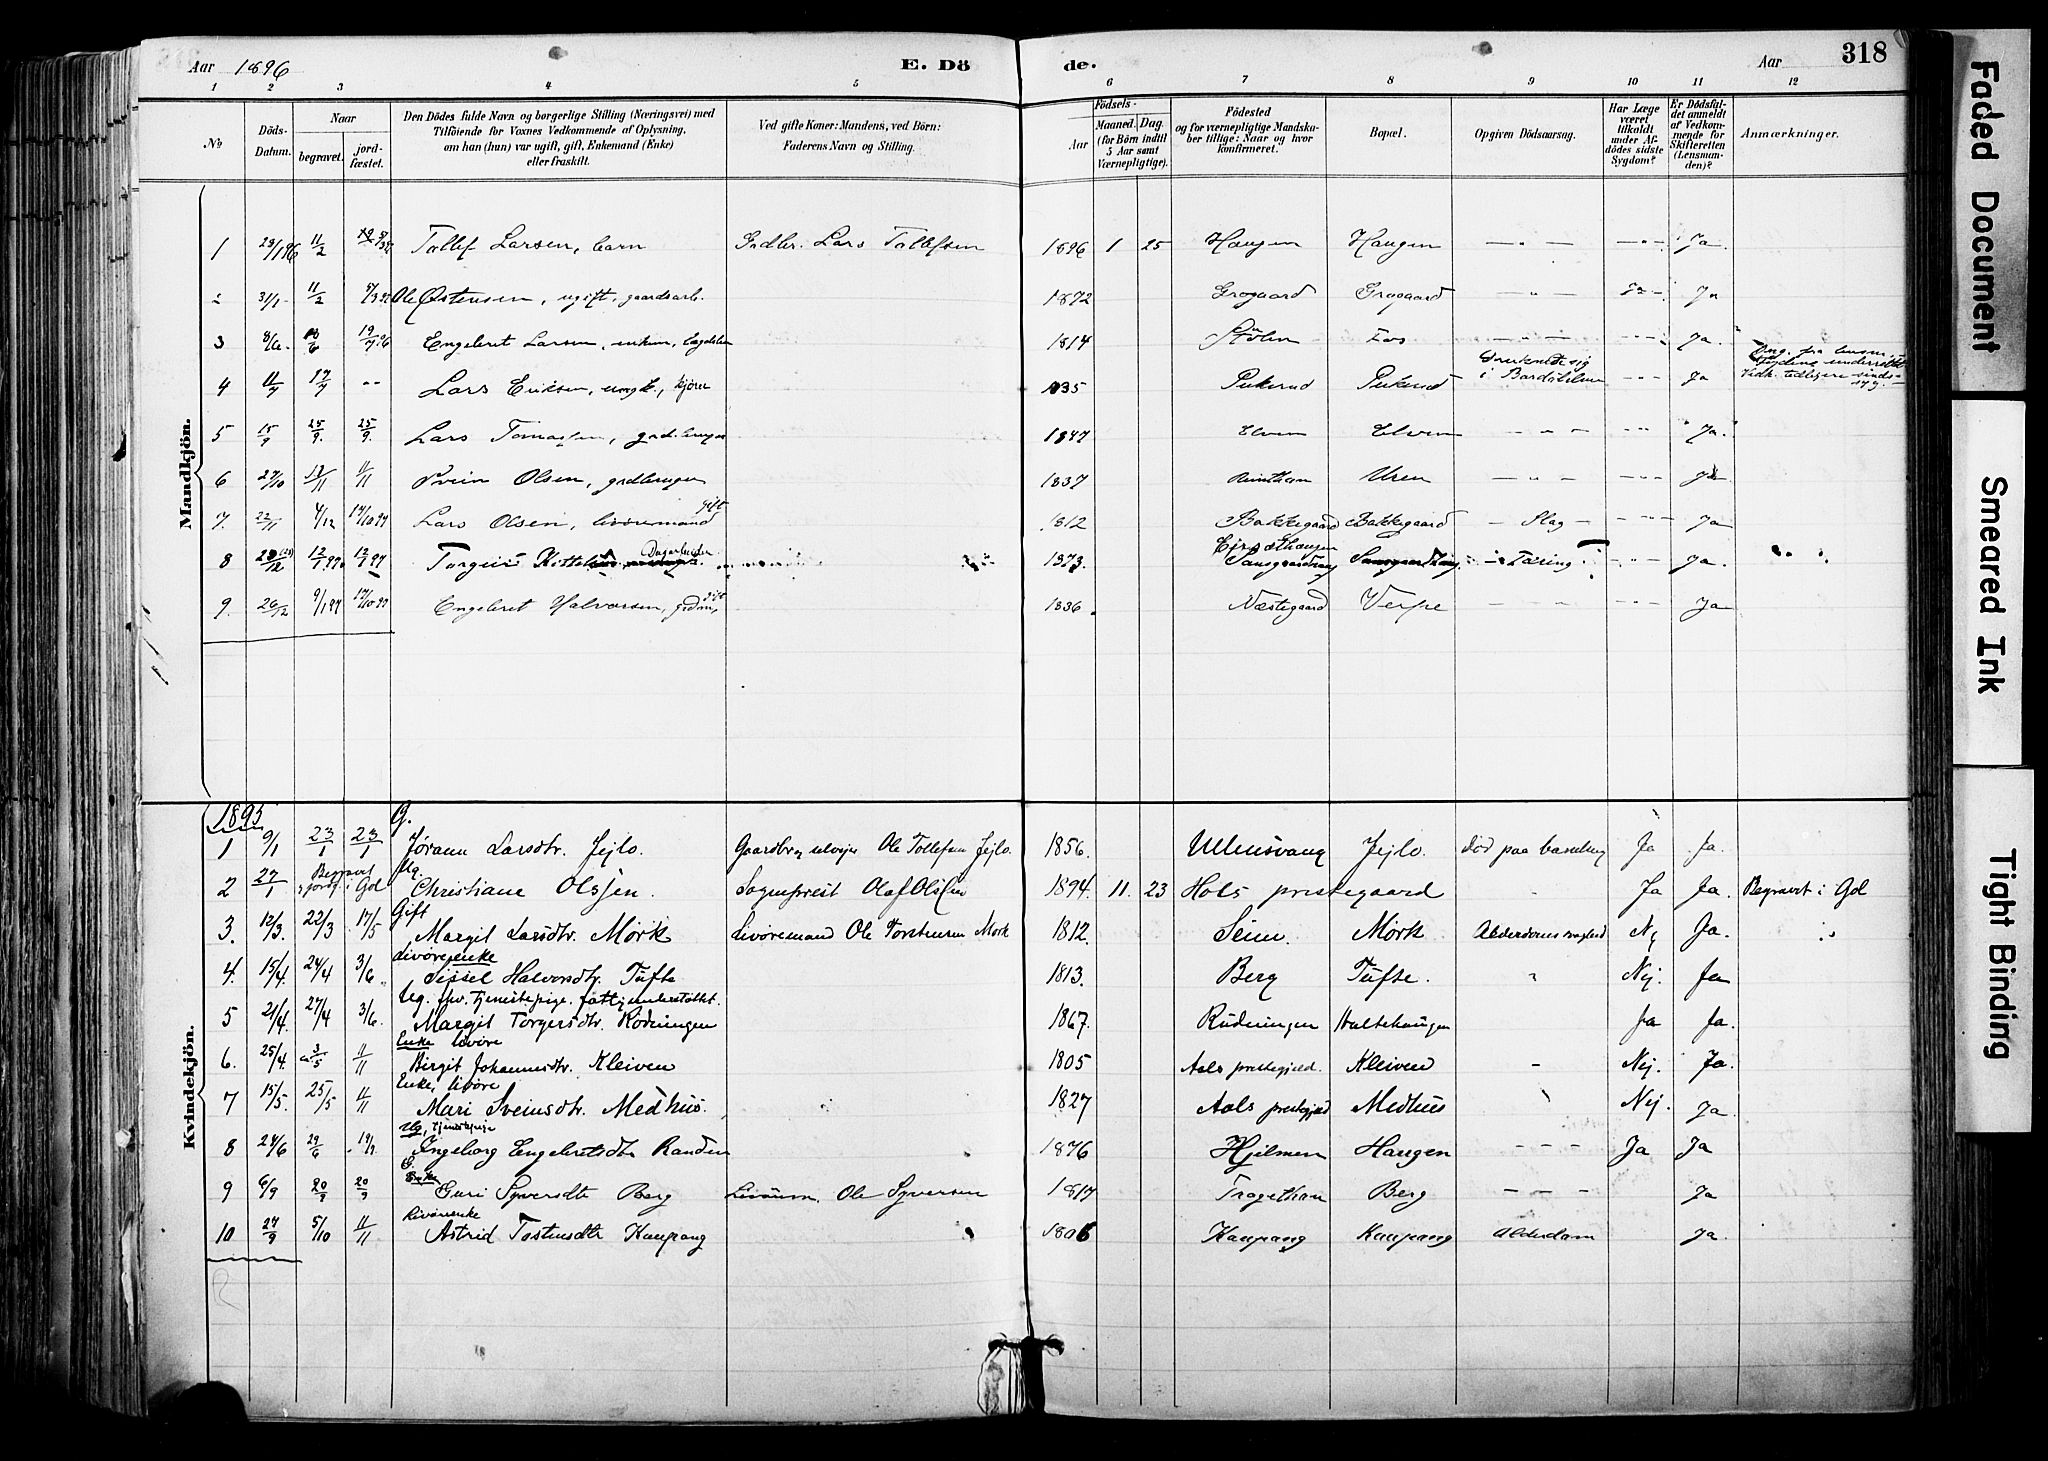 Aar 1896
E. Dö
de.
Aar
318
1 2 3 4 5 6 7 8 9 10 11 12
No
Döds-Datum.
Naar
begravet.
jord-fæstet.
Den Dödes fulde Navn og borgerlige Stilling (Næringsvei) med
Tilföiende for Voxnes Vedkommende af Oplysning,
om han (hun) var ugift, gift, Enkemand (Enke)
eller fraskilt.
Ved gifte Koner: Mandens, ved Börn:
Faderens Navn og Stilling.
Födsels-
Aar
Maaned. Dag.
(for Börn indtil
5 Aar samt
Værnepligtige).
Födested
og for værnepligtige Mandska-
ber tillige: Naar og hvor
konfirmeret.
Bopæl.
Opgiven Dödsaarsag.
Har Læge
været
tilkaldt
under Af-
dödes sidste
Sygdom?
Er Dödsfal-
det anmeldt
af Vedkom-
mende for
Skifteretten
(Lensman-
den)?
Anmærkninger.
Mandkjön.
1 11/2 Tollef Larsen, barn Grdbr. Lars Tollefsen 1896 1 25 Haugen Haugen Ja
2 31/1 11/2 Ole Østensen, ugift, gaardsarb. 1872 Grøgaard Grøgaard Ja
3 8/6 19/7 96 Engebret Larsen 1814 Støln Fos Ja
4 11/7 17/7 Lars Eriksen, 1835 Pukerud Pukerud Druknede sig i Bardøleln Ja
5 15/9 25/9. 25/9. Lars Tomassen, grdbruger 1847 Elven Elven Ja
6 27/10 11/11 Svein Olsen, grdbruger 1837 Uren Ja
7. 22/11 4/12 17/10 97 Lars Olsen, livøremand gift 1812 Bakkegaard Bakkegaard Slag Ja
8 12/1 97. 12/1 97 Torgeir 1873. Tæring Ja.
9. 26/12 9/1 97 17/10 97 Engebret Halvorsen, grdm, gift 1836 Næstegaard Ja
Kvindekjön.
1895
G.
1 9/1 23/1 23/1 Jørann Larsdtr. Jejlo. Ole Tollefsen Jejlo. 1856. Ullensvang Jejlo. død paa barselseng Ja Ja.
Ug.
2 27/1 Begravet i Gol Christiane Olssen. Sogneprest Olaf Olssen 1894 11. 23 Hols prestegaard Ja Ja. Begravet i Gol
Gift
3. 12/3. 22/3 17/5 Margit Larsdtr. Mørk Livøremand Ole Torstensen Mørk 1812. Seim. Mørk Alderdomssvaghed Nej Ja.
Livøreenke
4. 15/4. 24/4 3/6. Sissel Halvorsdtr. Tufte 1813. Berg Tufte. Nej. Ja
Ug. fhv. tjenestepige. fattigunderstøttet.
5 21/4. 27/4 3/6. Margit Torgersdtr. Rødningen 1867. Rudningen Haltehaugen Ja Ja.
Enke livøre
6. 25/4. 3/5 11/11 Birgit Johannesdtr. Kleiven 1805 Aals prestegjeld. Kleiven Nej. Ja.
Enke, livøre
7 15/5. 25/5 11/11 Mari Sveinsdtr. Medhus. 1827 Aals prestegjeld Medhus Nej. Ja
Ug, tjenestepige
8 24/6 29/6 Ingeborg Engebretsdtr Randen 1876 Hjelmen Haugen Ja Ja
G.
9 6/9 20/9 20/9 Guri Syversdtr Berg Livørem. Ole Syversen 1817 Trogethan Berg Ja
Livøreenke
10 27/9 5/10 11/11 Astrid Tostensdtr Kaupang 1806 Kaupang Kaupang Alderdom Ja.
Faded Document
Smeared Ink
Tight Binding